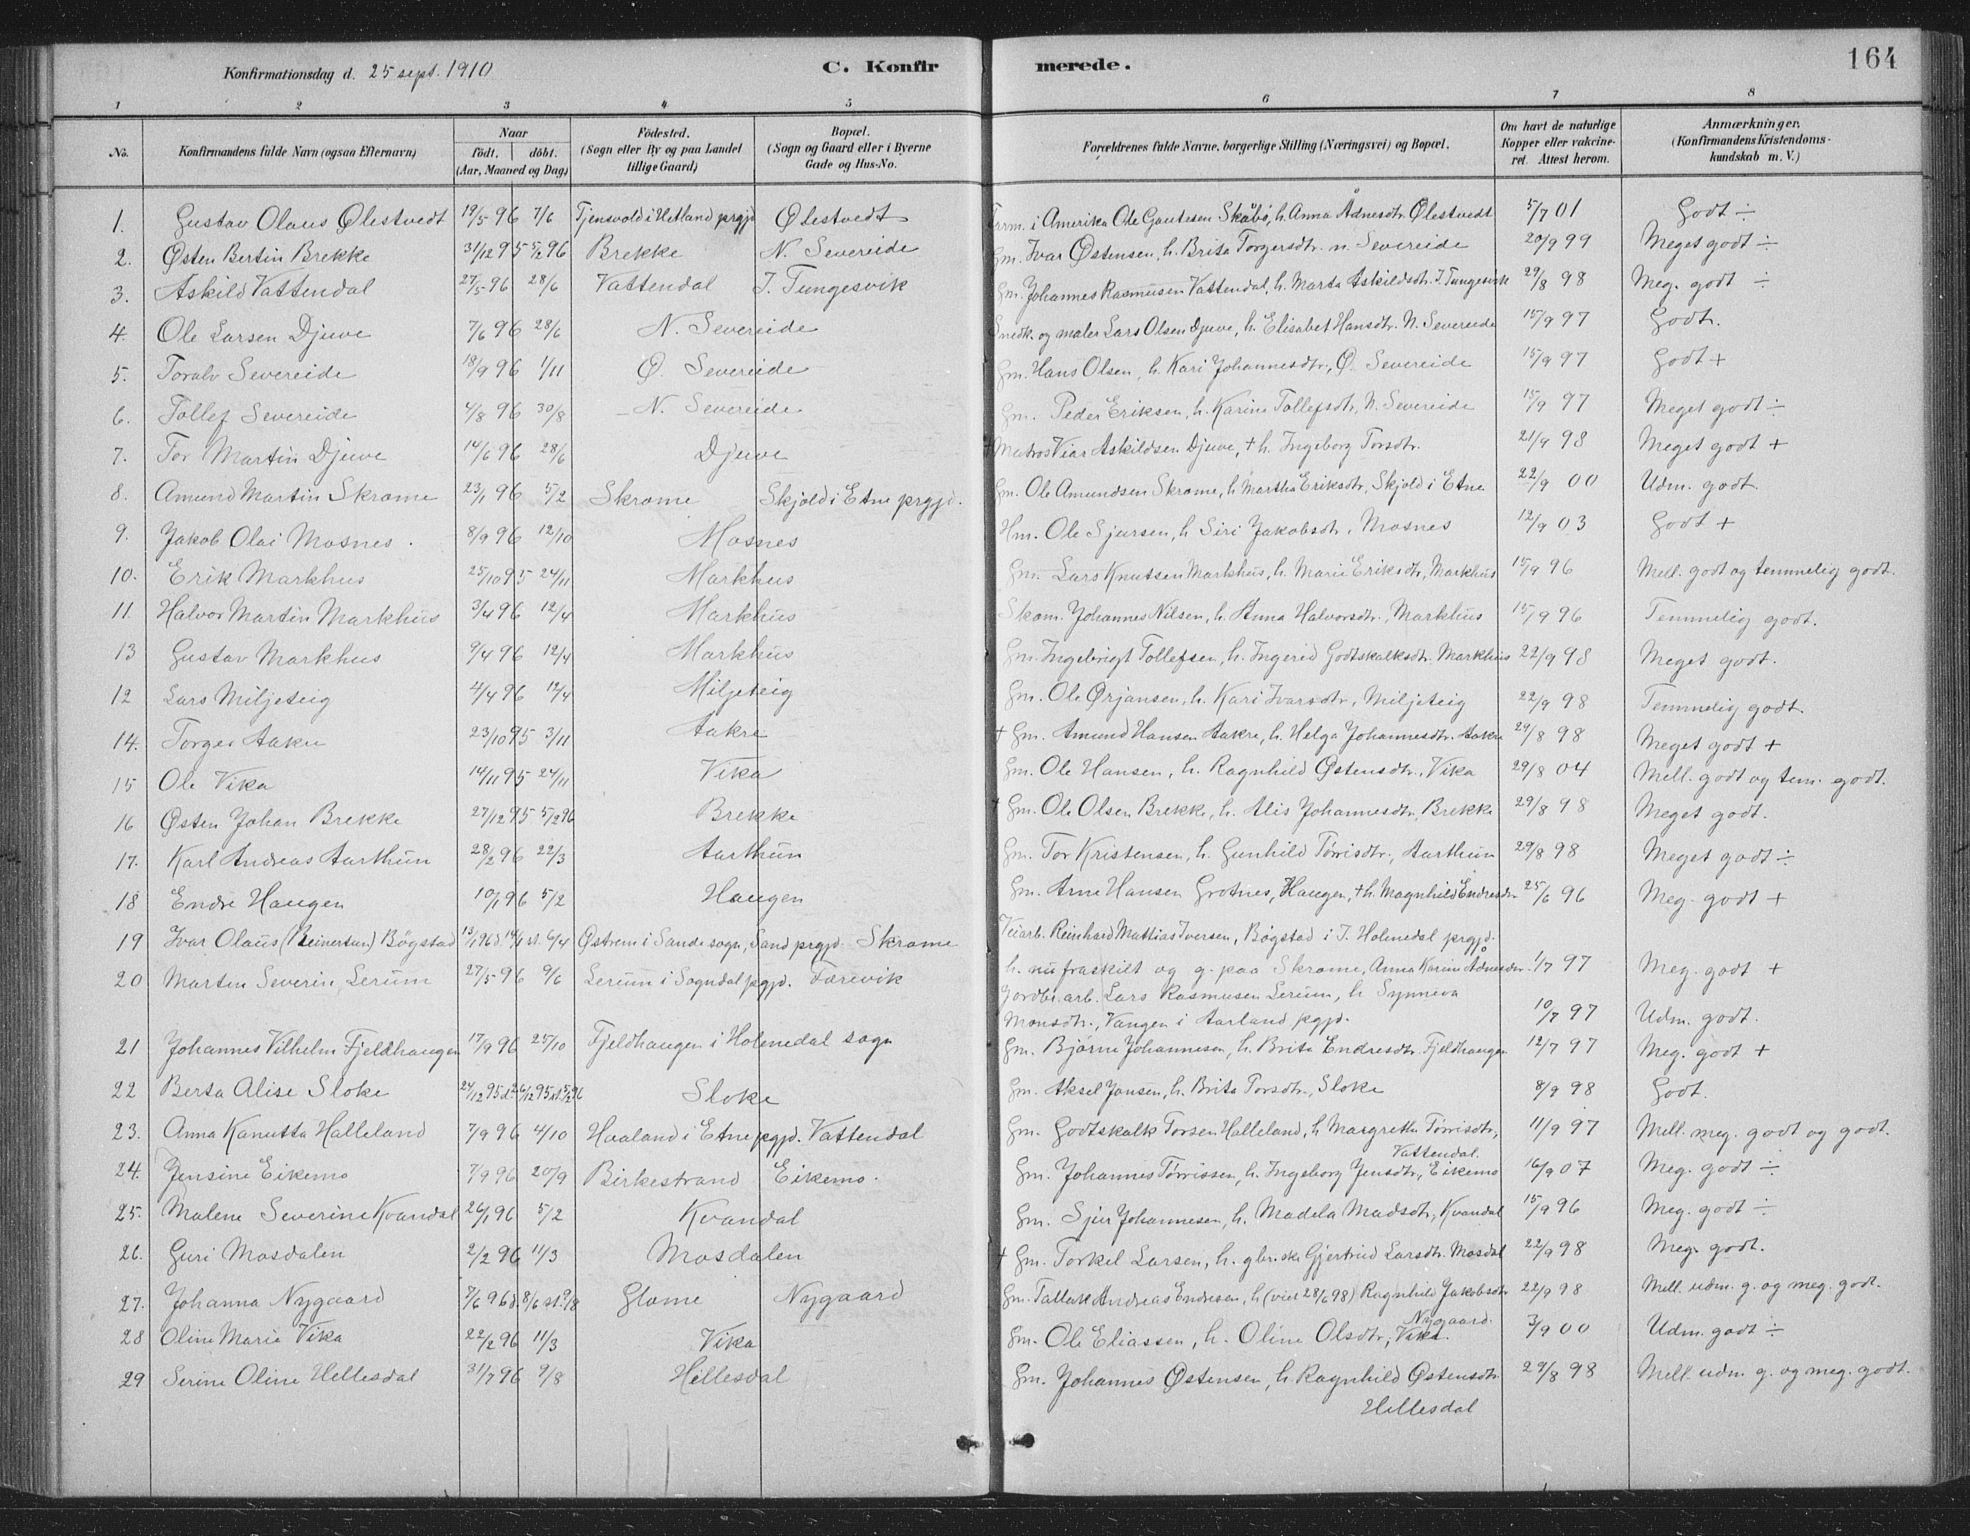 164
Konfirmationsdag d. 25 sept. 1910
C. Konfir merede.
1 2 3 4 5 6 7 8
No.
Konfirmandens fulde Navn (ogsaa Efternavn)
Naar
födt. | döbt.
(Aar, Maaned og Dag)
Födested.
(Sogn eller By og paa Landet
tillige Gaard)
Bopæl.
(Sogn og Gaard eller i Byerne
Gade og Hus-No.
Forældrenes fulde Navne, borgerlige Stilling (Næringsvei) og Bopæl.
Om havt de naturlige
Kopper eller vakcine-
ret. Attest herom.
Anmærkninger.
(Konfirmandens Kristendoms-
kundskab m. V.)
1. Gustav Olaus Ølestvedt 19/5 96 7/6 Tjensvold i Hetland prgjd Ølestvedt Farm. i Amerika Ole Gautesen Skåbø, h. Anna Ådnesdtr. Ølestvedt 5/7 01 Godt ÷
2. Østen Bertin Brekke 31/12 95 5/2 96 Brekke N. Severeide Gm. Ivar Østensen, h. Brita Torgersdtr. n. Severeide 20/9 99 Meget godt ÷
3. Askild Vattendal 27/5 96 28/6 Vattendal I. Tungesvik Gm. Johannes Rasmusen Vattendal, h. Marta Askildsdtr. I. Tungesvik 29/8 98 Meg. godt ÷
4. Ole Larsen Djuve 7/6 96 28/6 N. Severeide Snedk. og maler Lars Olsen Djuve, h. Elisabet Hansdtr. N. Severeide 15/9 97 Godt.
5. Toralv Severeide 18/9 96 1/11 Ø. Severeide Gm. Hans Olsen, h. Kari Johannesdtr., Ø. Severeide 15/9 97 Godt +
6. Tollef Severeide 4/8 96 30/8 N. Severeide Gm. Peder Eriksen, h. Karine Tollefsdtr, N. Severeide 15/9 97 Meget godt ÷
7. Tor Martin Djuve 14/6 96 28/6 Djuve + Matros Viar Askildsen Djuve, + h. Ingeborg Torsdtr. 21/9 98 Meget godt +
8. Amund Martin Skrome 23/1 96 5/2 Skrome Skjold i Etne prgjd. Gm. Ole Amundsen Skrome, h. Martha Eriksdtr, Skjold i Etne 22/9 00 Udm. godt.
9. Jakob Olai Mosnes. 8/9 96 12/10 Mosnes Hm. Ole Sjursen, h Siri Jakobsdtr, Mosnes 12/9 03 Godt +
10. Erik Markhus 25/10 95 24/11 Markhus Gm. Lars Knutsen Markhus, h. Marie Eriksdtr, Markhus 15/9 96 Mell. godt og temmelig godt.
11. Halvor Martin Markhus 3/4 96 12/4 Markhus Skom. Johannes Nilsen, h. Anna Halvorsdtr., Markhus 15/9 96 Temmelig godt.
13 Gustav Markhus 9/4 96 12/4 Markhus Gm. Ingebrigt Tollefsen, h. Ingerid Godtskalksdtr. Markhus 22/9 98 Meget godt.
12 Lars Miljeteig 4/4 96 12/4 Miljeteig Gm. Ole Ørjansen, h. Kari Ivarsdtr, Miljeteig 22/9 98 Temmelig godt.
14. Torger Aakre 23/10 95 3/11 Aakre + Gm. Amund Hansen Aakre, h. Helga Johannesdtr. Aakre 29/8 98 Meget godt +
15 Ole Vika 14/11 95 24/11 Vika Gm. Ole Hansen, h. Ragnhild Østensdtr., Vika 29/8 04 Mell. godt og tem. godt.
16 Østen Johan Brekke 27/12 95 5/2 96 Brekke + Gm. Ole Olsen Brekke, h. Alis Johannesdtr, Brekke 29/8 98 Meget godt.
17. Karl Andreas Aarthun 28/2 96 22/3 Aarthun Gm. Tor Kristensen, h. Gunhild Tørrisdtr., Aarthun 29/8 98 Meget godt ÷
18 Endre Haugen 10/1 96 5/2 Haugen Gm. Arne Hansen Grotnes, Haugen, + h. Magnhild Endresdtr 25/6 96 Meg. godt +
19 Ivar Olaus (Reinertsen) Bøgstad 13/1 96 d. 14/1 st. 6/4 Østrem i Sande sogn, Sand prgjd. Skrome Veiarb. Reinhard Mattias Iversen, Bøgstad i I. Holmedal prgjd.
h. nu fraskilt og g. paa Skrome, Anna Karine Ådnesdtr. 1/7 97 Meg. godt +
20 Martin Severin Lerum 27/5 96 9/6 Lerum i Sogndal pgjd. Farevik Jordbr. arb. Lars Rasmusen Lerum, h Synneva
Monsdtr., Vangen i Aarland pgjd. 10/7 97 Udm. godt.
21 Johannes Vilhelm Fjeldhaugen 17/9 96 25/10 Fjeldhaugen i Holmedal sogn Gm. Bjørne Johannesen, h. Brita Endresdtr. Fjeldhaugen 12/7 97 Meg. godt +
22 Berta Alise Sloke 24/12 95 d. 26/12 95 st. 5/2 96 Sloke Gm. Aksel Jansen, h. Brita Torsdtr., Sloke 8/9 98 Godt.
23. Anna Kanutta Halleland 7/9 96 4/10 Haaland i Etne pgjd. Vattendal Gm. Godtskalk Torsen Halleland, h Margrethe Tørrisdtr, Vattendal. 11/9 97 Mell. meg. godt og godt.
24. Jensine Eikemo 7/9 96 20/9 Birkestrand Eikemo. Gm. Johannes Tørrissen, h. Ingeborg Jensdtr, Eikemo 16/9 07 Meg. godt ÷
25. Malene Severine Kvandal 26/1 96 5/2 Kvandal Gm. Sjur Johannesen, h. Madela Madsdtr, Kvandal 15/9 96 Meg. godt ÷
26. Guri Mosdalen 2/2 96 11/3 Mosdalen + Gm. Torkel Larsen, h. gbr.ske Gjertrud Larsdtr. Mosdal 22/9 98 Meg. godt.
27. Johanna Nygaard 7/6 96 d. 8/6 st. 9/8 Glome Nygaard Gm. Tallak Andreas Endresen, h (viet 28/6 98) Ragnhild Jakobsdtr Nygaard. 22/9 98 Mell. udm. g. og meg. godt.
28 Oline Marie Vika 22/2 96 11/3 Vika Gm. Ole Eliassen, h. Oline Olsdtr, Vika. 3/9 00 Udm. godt ÷
29 Serine Oline Hellesdal 31/7 96 9/8 Hellesdal Gm. Johannes Østensen, h. Ragnhild Østensdtr. 29/8 98 Mell. udm. g. og meg. godt.
Hellesdal